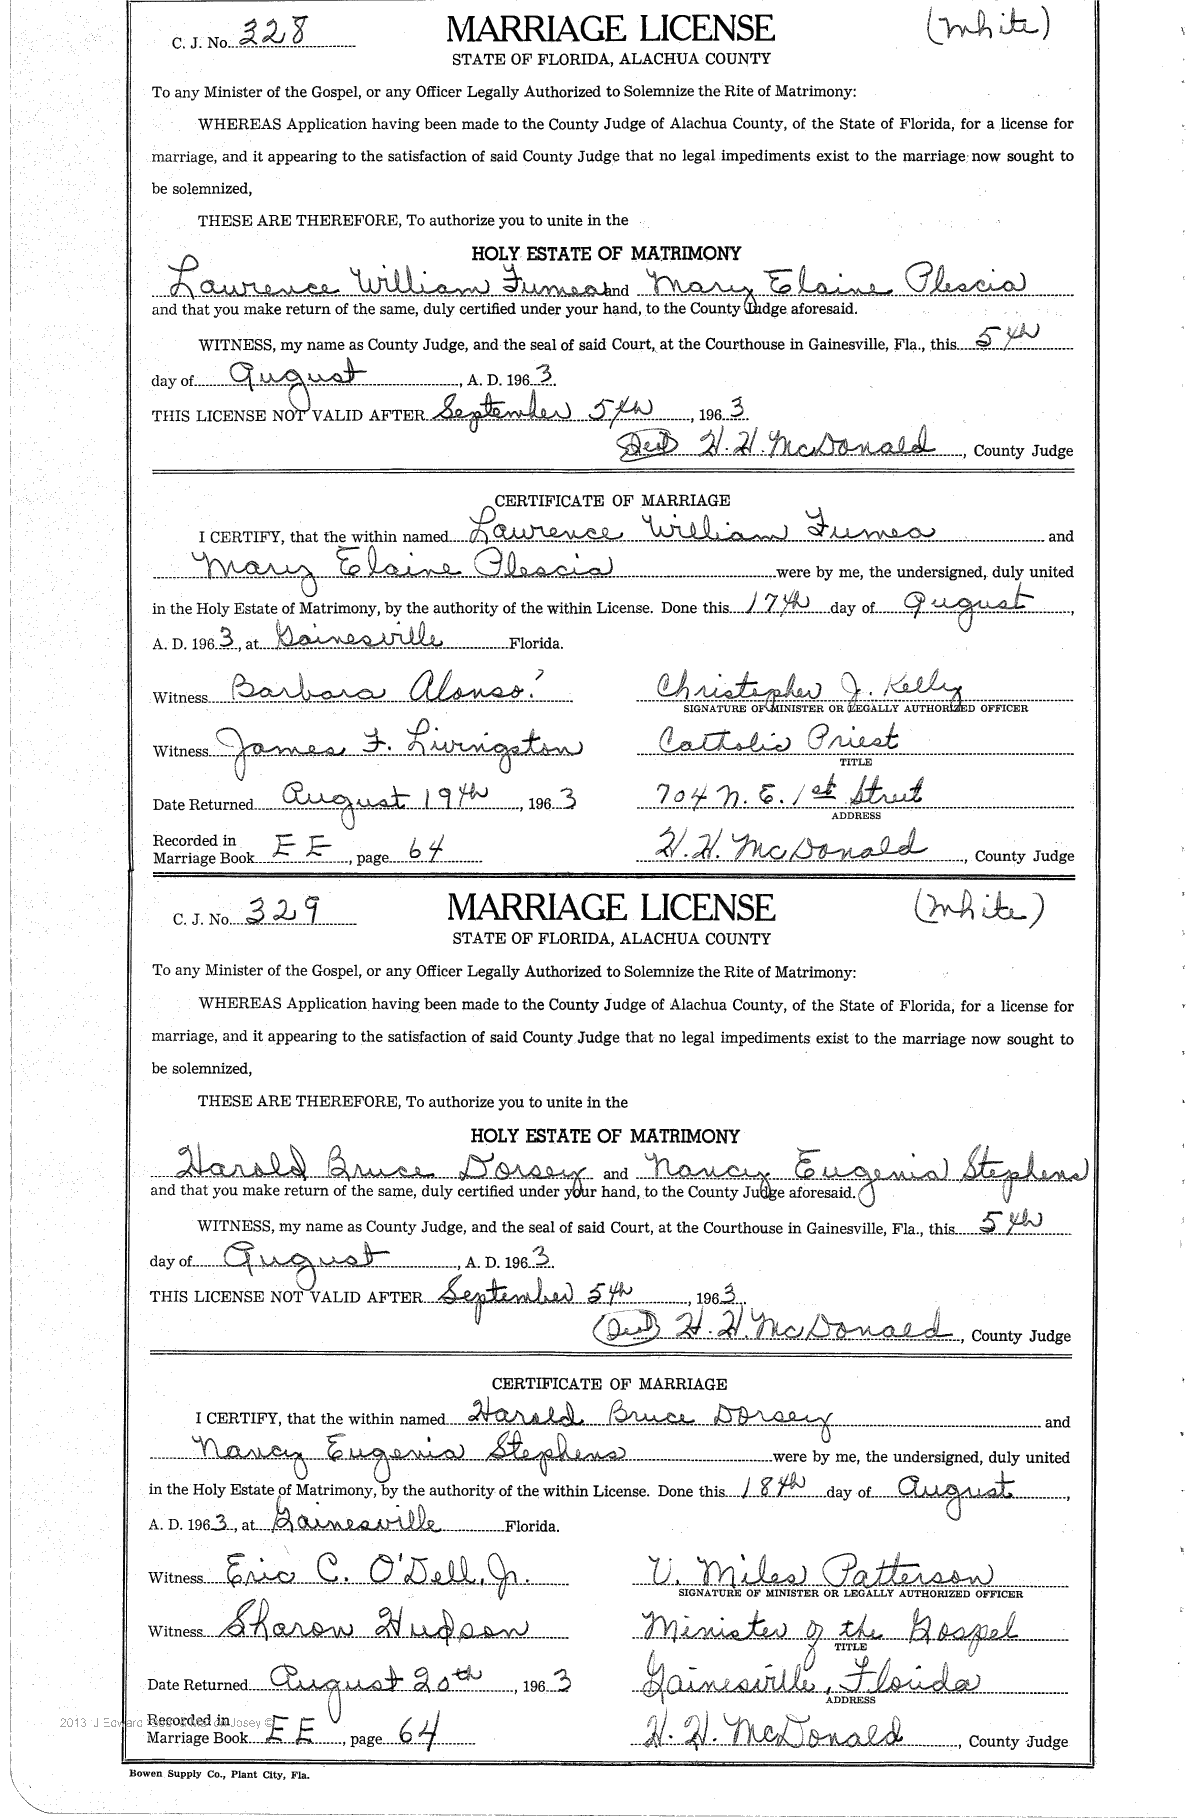 C. J. No. 328 MARRIAGE LICENSE (White)
STATE OF FLORIDA, ALACHUA COUNTY
To any Minister of the Gospel, or any Officer Legally Authorized to Solemnize the Rite of Matrimony:
WHEREAS Application having been made to the County Judge of Alachua County, of the State of Florida, for a license for
marriage, and it appearing to the satisfaction of said County Judge that no legal impediments exist to the marriage now sought to
be solemnized,
THESE ARE THEREFORE, To authorize you to unite in the
HOLY ESTATE OF MATRIMONY
Lawrence William Fumea and Mary Elaine Plescia
and that you make return of the same, duly certified under your hand, to the County Judge aforesaid.
WITNESS, my name as County Judge, and the seal of said Court, at the Courthouse in Gainesville, Fla., this 5th
day of August, A. D. 1963.
THIS LICENSE NOT VALID AFTER September 5th, 1963
H. H. McDonald, County Judge
CERTIFICATE OF MARRIAGE
I CERTIFY, that the within named Lawrence William Fumea and
Mary Elaine Plescia were by me, the undersigned, duly united
in the Holy Estate of Matrimony, by the authority of the within License. Done this 17th day of August,
A. D. 1963, at Gainesville Florida.
Witness Barbara Alonso Christopher J. Kelly
SIGNATURE OF MINISTER OR LEGALLY AUTHORIZED OFFICER
Witness James F. Livingston Catholic Priest
TITLE
Date Returned August 19th, 1963 704 N. E. 1st Street
ADDRESS
Recorded in
Marriage Book EE, page 64 H. H. McDonald, County Judge
C. J. No. 329 MARRIAGE LICENSE (White)
STATE OF FLORIDA, ALACHUA COUNTY
To any Minister of the Gospel, or any Officer Legally Authorized to Solemnize the Rite of Matrimony:
WHEREAS Application having been made to the County Judge of Alachua County, of the State of Florida, for a license for
marriage, and it appearing to the satisfaction of said County Judge that no legal impediments exist to the marriage now sought to
be solemnized,
THESE ARE THEREFORE, To authorize you to unite in the
HOLY ESTATE OF MATRIMONY
Harold Bruce Dorsey and Nancy Eugenia Stephens
and that you make return of the same, duly certified under your hand, to the County Judge aforesaid.
WITNESS, my name as County Judge, and the seal of said Court, at the Courthouse in Gainesville, Fla., this 5th
day of August, A. D. 1963.
THIS LICENSE NOT VALID AFTER September 5th, 1963.
H. H. McDonald, County Judge
CERTIFICATE OF MARRIAGE
I CERTIFY, that the within named Harold Bruce Dorsey and
Nancy Eugenia Stephens were by me, the undersigned, duly united
in the Holy Estate of Matrimony, by the authority of the within License. Done this 18th day of August,
A. D. 1963, at Gainesville Florida.
Witness Eric C. O'Dell, Jr. V. Miles Patterson
SIGNATURE OF MINISTER OR LEGALLY AUTHORIZED OFFICER
Witness Sharon Hudson Minister of the Gospel
TITLE
Date Returned August 20th, 1963 Gainesville, Florida
ADDRESS
Recorded in
2013 J Josey ©
Marriage Book EE, page 64 H. H. McDonald, County Judge
Bowen Supply Co., Plant City, Fla.